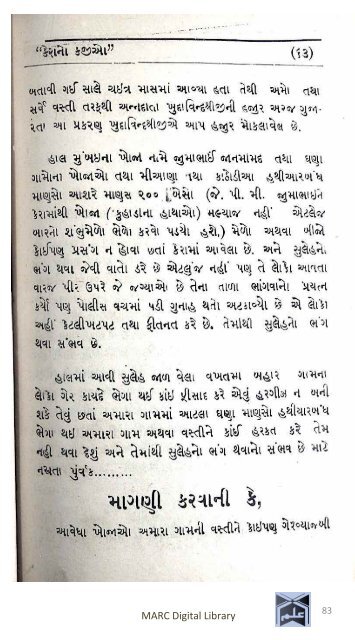 "કેરાનો કજીઓ" (૬૩)
બતાવી ગઈ સાલે ચઈત્ર માસમાં આવ્યા હતા તેથી અમો તથા
સર્વે વસ્તી તરફથી અન્નદાતા ખુદાવિન્દશ્રીજીની હજુર અરજ ગુજા-
રંતા આ પ્રકરણ ખુદાવિન્દશ્રીજીએ આપ હજુર મોકલાવેલ છે.
હાલ મુંબઇના ખોજા નામે જુમાભાઈ જાનમામદ તથા ઘણા
ગામોના ખોજાઓ તથા મીઆણા તથા કાઠીઓ હથીઆરબંધ
માણસો આશરે માણસ ૨૦૦ બેસો (જે. પી. મી. જુમાભાઇને
કેરામાંથી ખોજા ('કુહાડાના હાથાઓ) મલ્યાજ નહીં એટલેજ
બારનો શંભુમેળો ભેળો કરવો પડ્યો હશે,) મેળો અથવા બીજો
કોઇપણ પ્રસંગ ન હોવા છતાં કેરામાં આવેલા છે. અને સુલેહનો
ભંગ થવા જેવી વાતો કરે છે એટલુંજ નહીં પણ તે લોકો આવતા
વારજ પીર ઉપરે જે જગ્યાઓ છે તેના તાળા ભાંગવાનો પ્રયત્ન
કર્યો પણ પોલીસ વચમાં પડી ગુનાહ થતો અટકાવ્યો છે એ લોકો
અહીં કેટલીખટપટ તથા ફીતનત કરે છે. તેમાંથી સુલેહનો ભંગ
થવા સંભવ છે.
હાલમાં આવી સુલેહ જાળવેલા વખતમાં બહાર ગામના
લોકો ગેર કાયદે ભેગા થઈ કાંઇ ફીસાદ કરે એવું હરગીઝ ન બની
શકે તેવું છતાં અમારા ગામમાં આટલા ઘણા માણસો હથીયારબંધ
ભેગા થઇ અમારા ગામ અથવા વસ્તીને કાંઈ હરકત કરે તેમ
નહી થવા દેશું અને તેમાંથી સુલેહનો ભંગ થવાનો સંભવ છે માટે
નમ્રતા પુર્વક.........
માગણી કરવાની કે,
આવેધા ખોજાઓ અમારા ગામની વસ્તીને કોઇપણ ગેરવ્યાજબી
MARC Digital Library 83